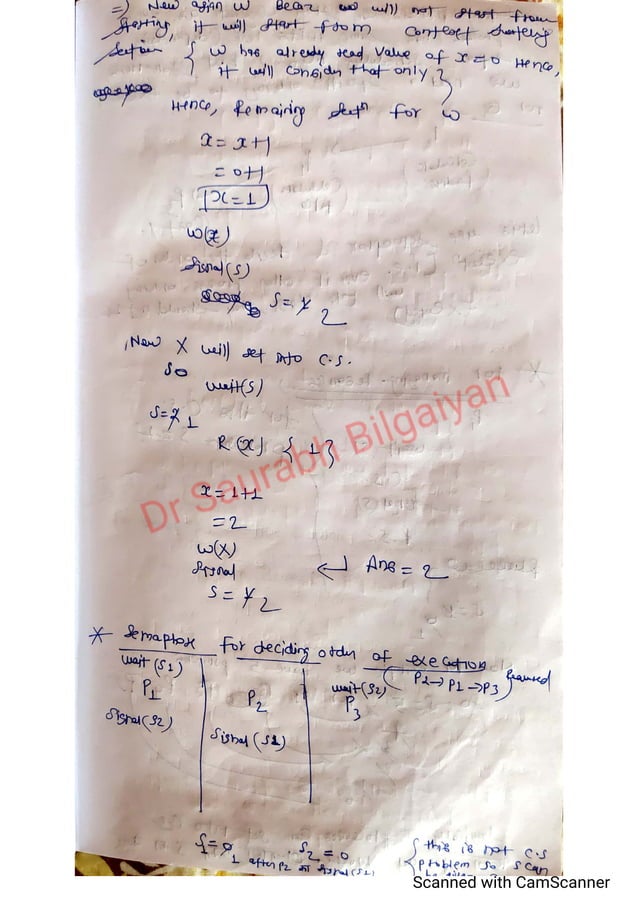 =) New again W Becaz we will not start from
starting, it will start from context switching
Section { W has already read value of x=0 Hence,
it will consider that only }
Hence, Remaining for W
x = x+1
= 0+1
x=1
W(x)
signal(s)
s= 1 2
Now X will get into C.S.
so
wait(s)
s=2 1
R(x) { 1 }
x = 1+1
= 2
W(x)
signal ↵ Ans = 2
s= 1 2
Dr Saurabh Bilgaiyan
* Semaphore for deciding order of execution
wait(s1) wait(s2) (P2→P1→P3)
P1 P2 P3
signal(s2) signal(s1)
s2 = 0 { this is not C.S
1 after P2 signal(s1) problem so s can
Scanned with CamScanner